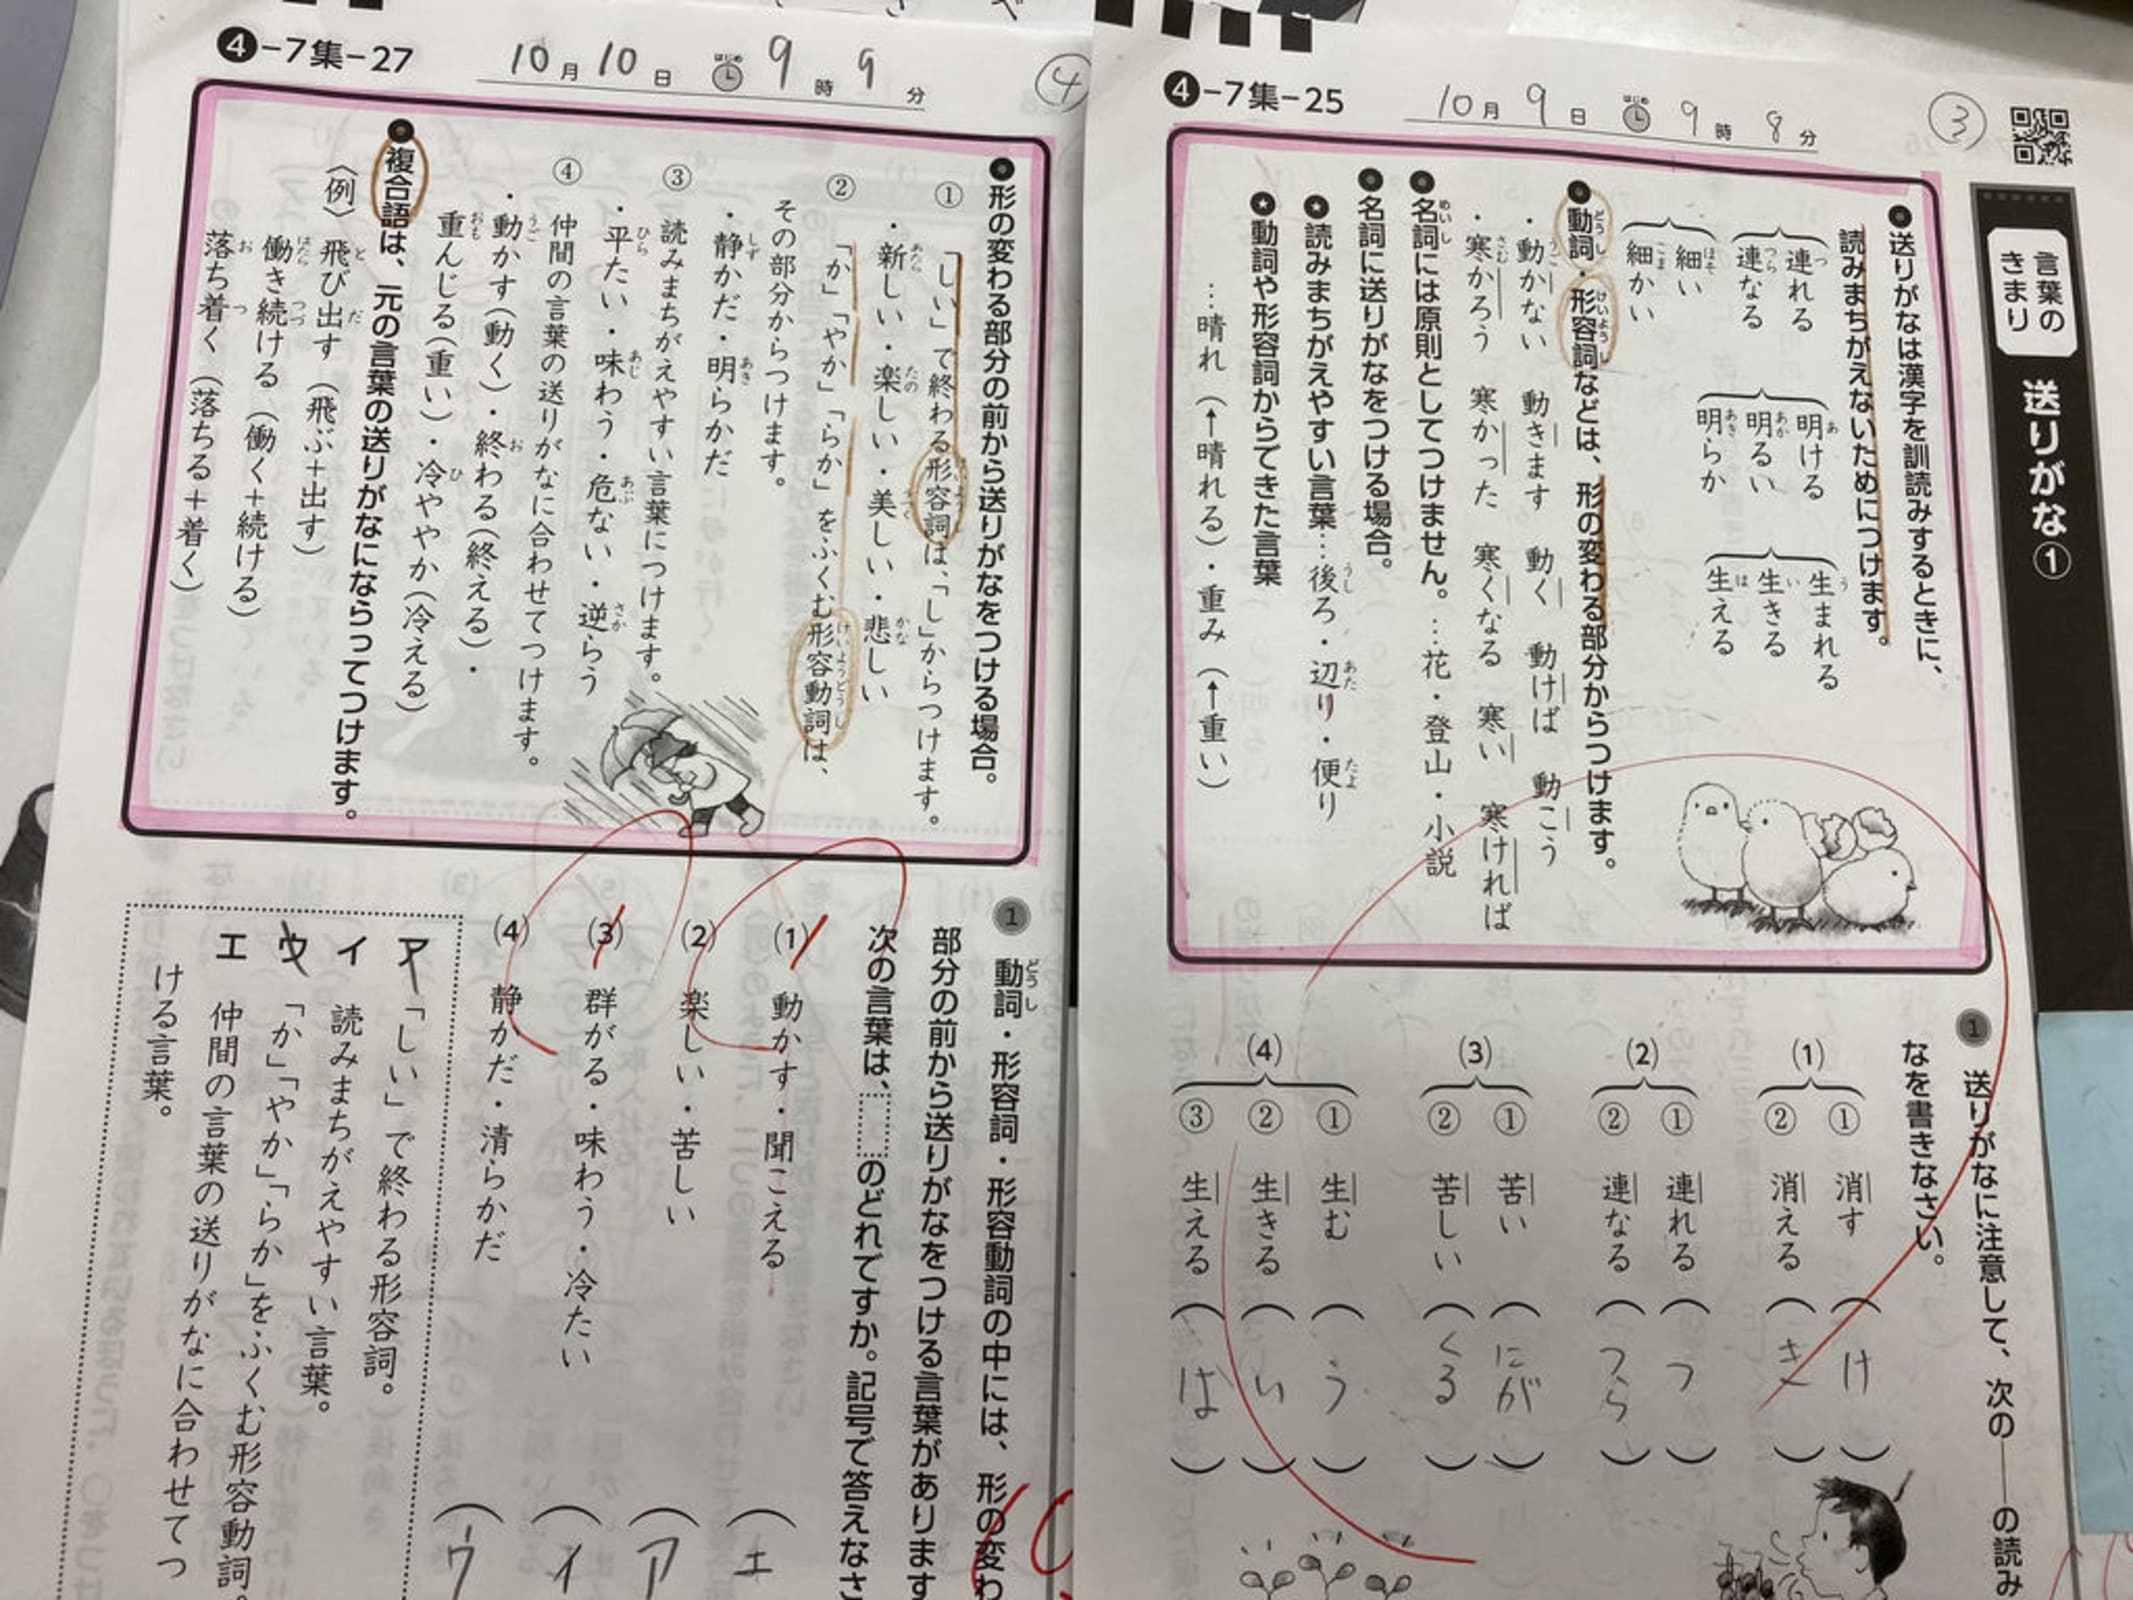 ④-7集-25
10月9日 はじめ 9時8分
③
言葉の
きまり
送りがな①
●送りがなは漢字を訓読みするときに、
読みまちがえないためにつけます。
連れる
連なる
細い
細かい
明ける
明るい
明らか
生まれる
生きる
生える
●動詞・形容詞などは、形の変わる部分からつけます。
・動かない 動きます 動く 動けば 動こう
・寒かろう 寒かった 寒くなる 寒い 寒ければ
●名詞には原則としてつけません。…花・登山・小説
●名詞に送りがなをつける場合。
★読みまちがえやすい言葉…後ろ・辺り・便り
★動詞や形容詞からできた言葉
…晴れ(↑晴れる)・重み(↑重い)
1 送りがなに注意して、次の──の読み
なを書きなさい。
(1) ① 消す (け)
② 消える (き)
(2) ① 連れる (つ)
② 連なる (つら)
(3) ① 苦い (にが)
② 苦しい (くる)
(4) ① 生む (う)
② 生きる (い)
③ 生える (は)
④-7集-27
10月10日 はじめ 9時9分
④
●形の変わる部分の前から送りがなをつける場合。
① 「しい」で終わる形容詞は、「し」からつけます。
・新しい・楽しい・美しい・悲しい
② 「か」「やか」「らか」をふくむ形容動詞は、
その部分からつけます。
・静かだ・明らかだ
③ 読みまちがえやすい言葉につけます。
・平たい・味わう・危ない・逆らう
④ 仲間の言葉の送りがなに合わせてつけます。
・動かす(動く)・終わる(終える)・
重んじる(重い)・冷ややか(冷える)
●複合語は、元の言葉の送りがなにならってつけます。
〈例〉飛び出す(飛ぶ+出す)
働き続ける(働く+続ける)
落ち着く(落ちる+着く)
1 動詞・形容詞・形容動詞の中には、形の変わ
部分の前から送りがなをつける言葉があります
次の言葉は、 のどれですか。記号で答えなさ
(1) 動かす・聞こえる (エ)
(2) 楽しい・苦しい (ア)
(3) 群がる・味わう・冷たい (イ)
(4) 静かだ・清らかだ (ウ)
ア 「しい」で終わる形容詞。
イ 読みまちがえやすい言葉。
ウ 「か」「やか」「らか」をふくむ形容動詞。
エ 仲間の言葉の送りがなに合わせてつ
ける言葉。